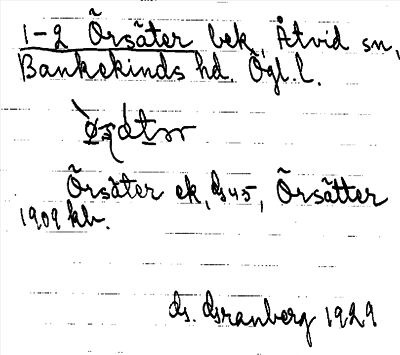 1-2 Örsäter bek., Åtvid sn,
Bankekinds hd. Ögl. l.
Örsäter ek, 45, Örsätter
1909 kb.
Granberg 1929